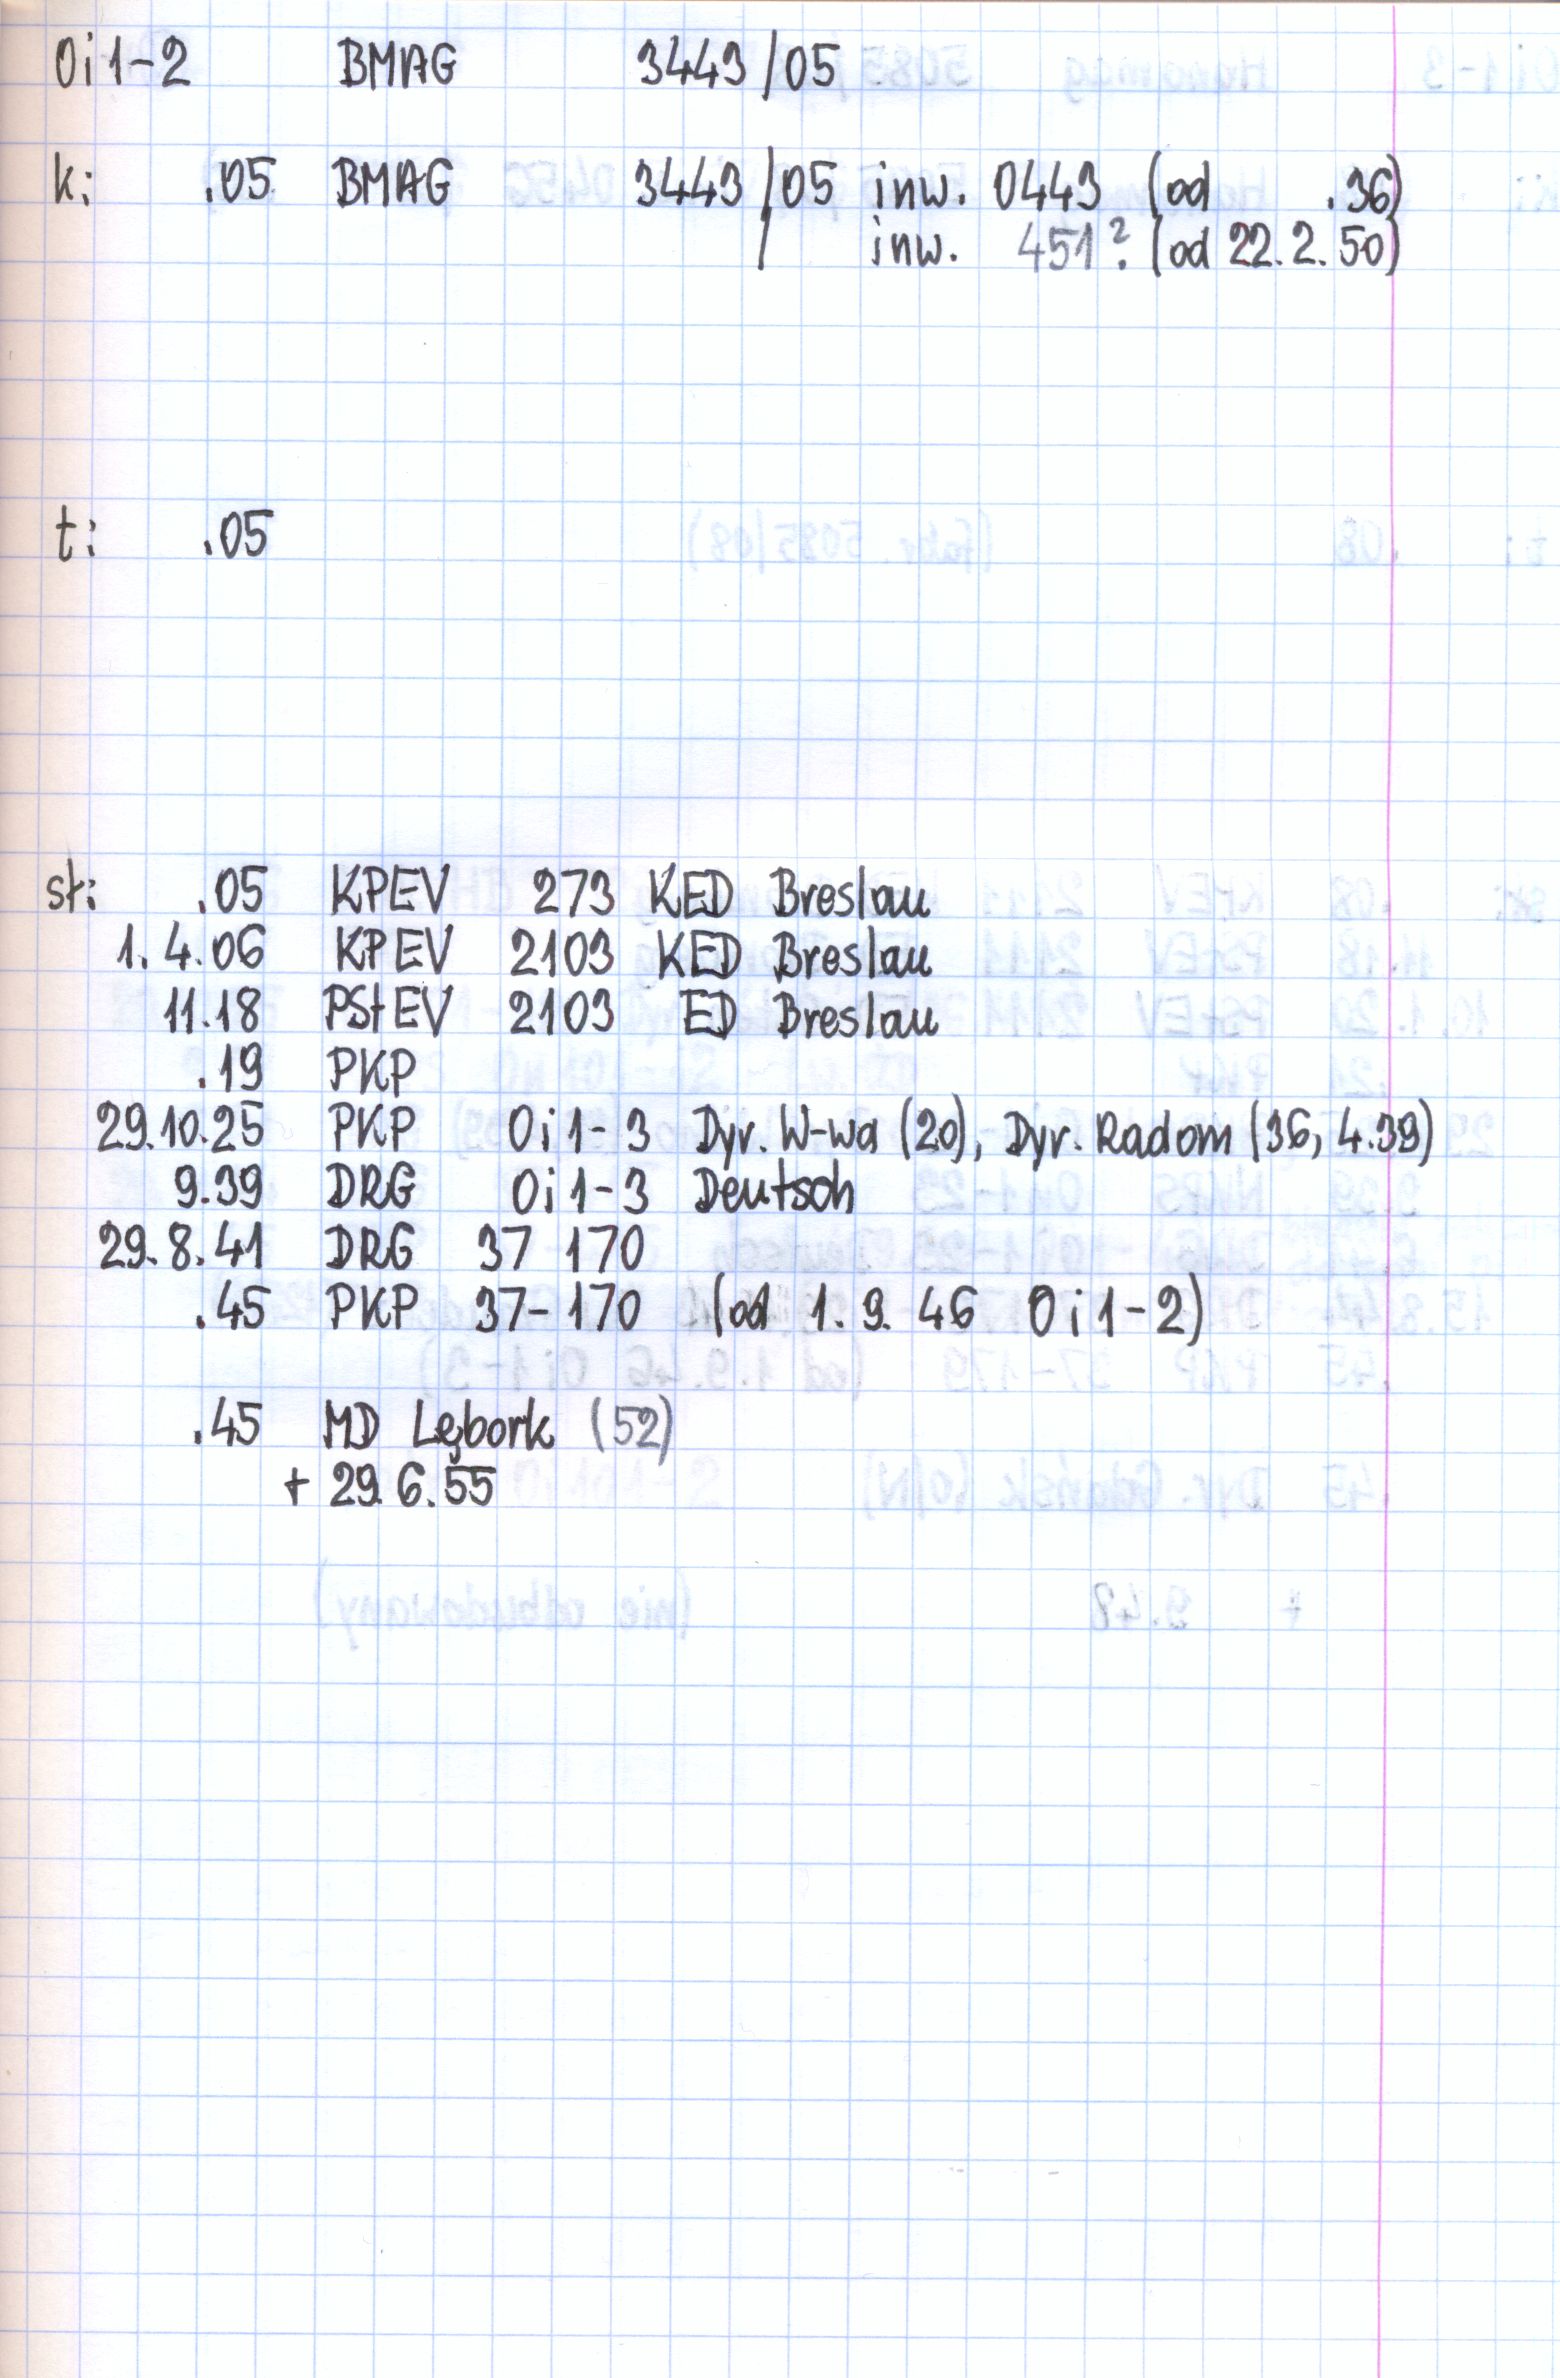 Oi1-2 BMAG 3443/05
k: .05 BMAG 3443/05 inw. 0443 (od .36)
/ inw. 451? (od 22.2.50)
t: .05
st: .05 KPEV 273 KED Breslau
1.4.06 KPEV 2103 KED Breslau
11.18 PStEV 2103 ED Breslau
.19 PKP
29.10.25 PKP Oi1-3 Dyr. W-wa (20), Dyr. Radom (36, 4.39)
9.39 DRG Oi1-3 Deutsch
29.8.41 DRG 37 170
.45 PKP 37-170 (od 1.9.46 Oi1-2)
.45 MD Lębork (52)
+ 29.6.55